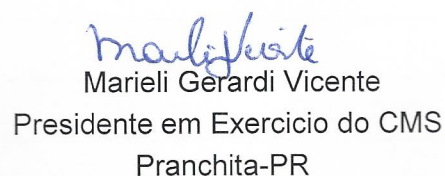 Marieli Gerardi Vicente
Presidente em Exercicio do CMS
Pranchita-PR